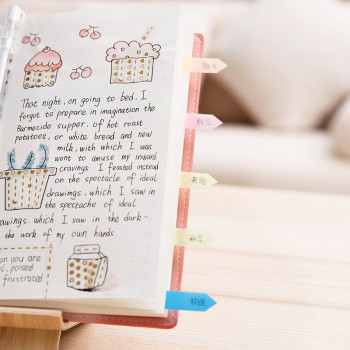 That night, on going to bed, I
forgot to prepare in imagination the
Barmecide supper, of hot roast
potatoes, or white bread and new
milk, with which I was
wont to amuse my inward
cravings. I feasted instead
on the spectacle of ideal
drawings, which I saw in
the spectacle of ideal
awings. which I saw in the dark-
the work of my own hands.
on you are
l, poised
frustrated
语文
数学
英语